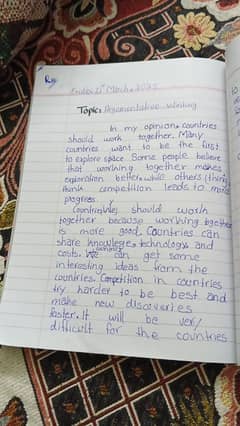 Friday March, 2025
Topic: Argumentative writing
In my opinion, countries
should work together. Many
countries want to be the first
to explore space. Some people believe
that working together makes
exploration better while others (think)
think competition leads to more
progress.
Countries should work
together because working together
is more good. Countries can
share knowledge, technology and
costs. We can get some
interesting ideas from the
countries. Competition in countries
try harder to be best and
make new discoveries
faster. It will be very
difficult for the countries